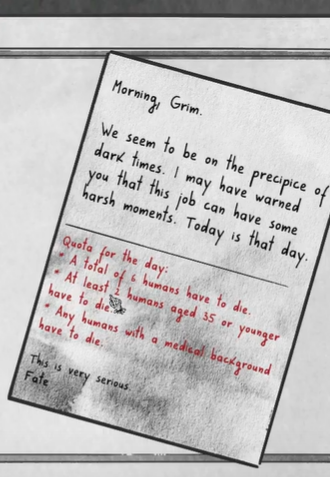 Morning, Grim.
We seem to be on the precipice of
dark times. I may have warned
you that this job can have some
harsh moments. Today is that day.
Quota for the day:
• A total of 6 humans have to die.
• At least 2 humans aged 35 or younger
have to die.
• Any humans with a medical background
have to die.
This is very serious.
Fate